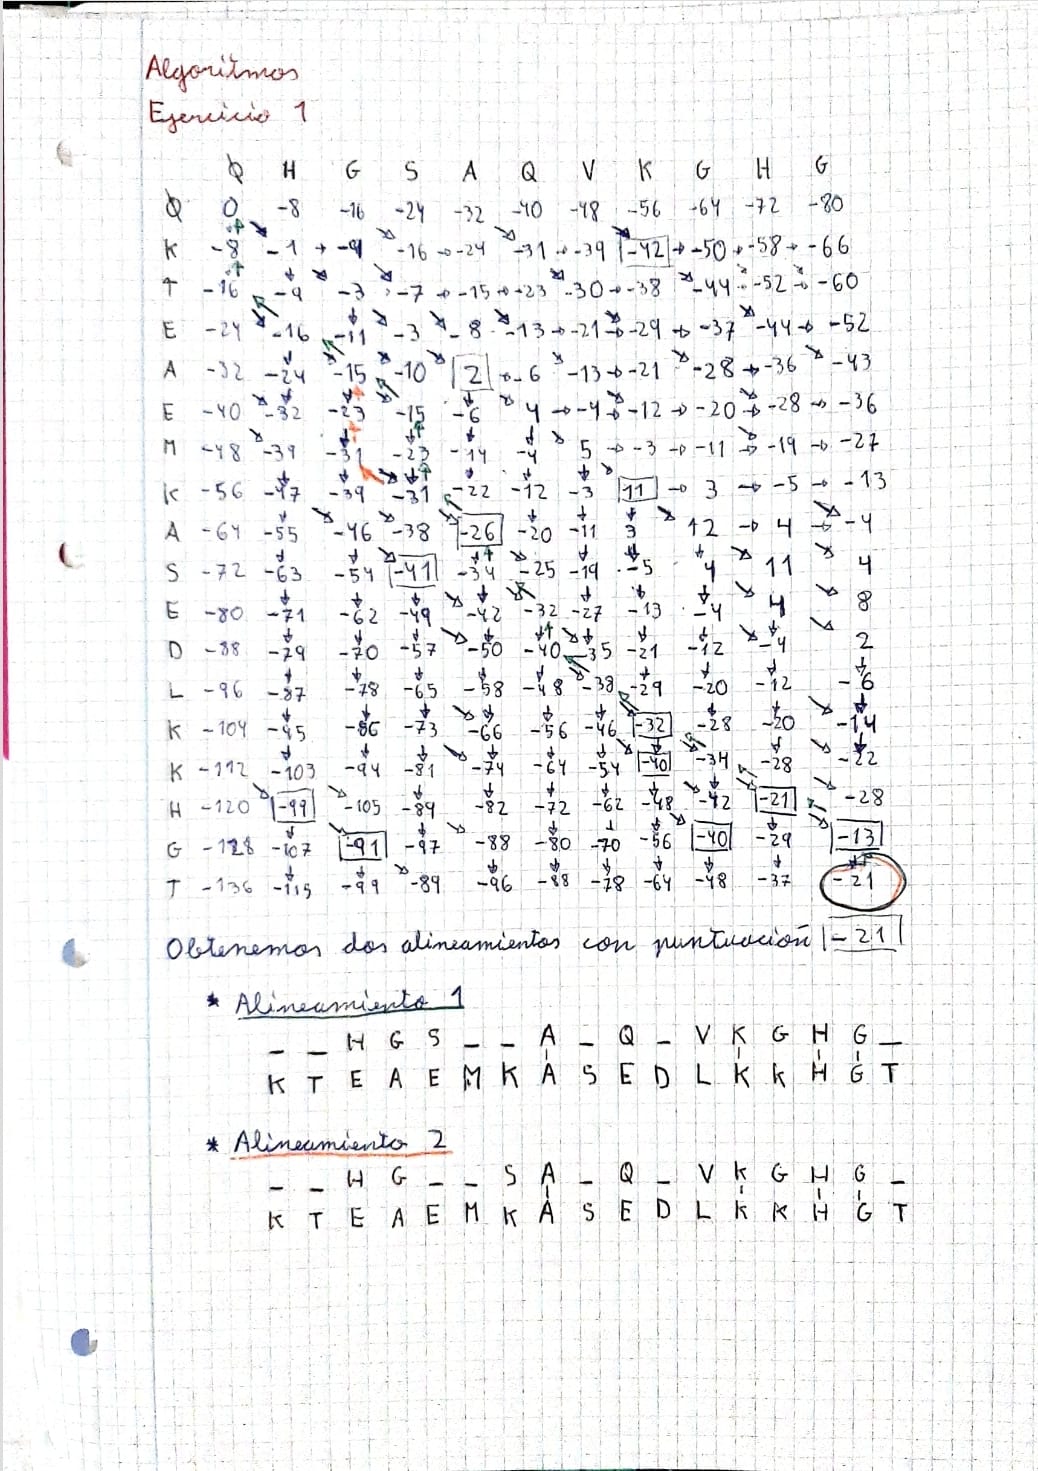 Algoritmos
Ejercicio 1
Ø H G S A Q V K G H G
Ø 0 -8 -16 -24 -32 -40 -48 -56 -64 -72 -80
K -8 -1 → -9 -16 → -24 -31 → -39 -42 → -50 → -58 → -66
T -16 -9 -3 -7 → -15 → -23 -30 → -38 -44 -52 -60
E -24 -16 -11 -3 -8 -13 → -21 -29 → -37 -44 → -52
A -32 -24 -15 -10 2 → -6 -13 → -21 -28 → -36 -43
E -40 -32 -23 -15 -6 4 → -4 -12 → -20 -28 → -36
M -48 -39 -31 -23 -14 -4 5 → -3 → -11 -19 → -27
K -56 -47 -39 -31 -22 -12 -3 11 → 3 → -5 → -13
A -64 -55 -46 -38 -26 -20 -11 3 12 → 4 → -4
S -72 -63 -54 -41 -34 -25 -19 -5 4 11 4
E -80 -71 -62 -49 -42 -32 -27 -13 -4 4 8
D -88 -79 -70 -57 -50 -40 -35 -21 -12 -4 2
L -96 -87 -78 -65 -58 -48 -38 -29 -20 -12 -6
K -104 -95 -86 -73 -66 -56 -46 -32 -28 -20 -14
K -112 -103 -94 -81 -74 -64 -54 -40 -34 -28 -22
H -120 -99 -105 -89 -82 -72 -62 -48 -42 -21 -28
G -128 -107 -91 -97 -88 -80 -70 -56 -40 -29 -13
T -136 -115 -99 -89 -96 -88 -78 -64 -48 -37 -21
Obtenemos dos alineamientos con puntuación -21
* Alineamiento 1
_ _ H G S _ _ A _ Q _ V K G H G _
K T E A E M K A S E D L K K H G T
* Alineamiento 2
_ _ H G _ _ S A _ Q _ V K G H G _
K T E A E M K A S E D L K K H G T